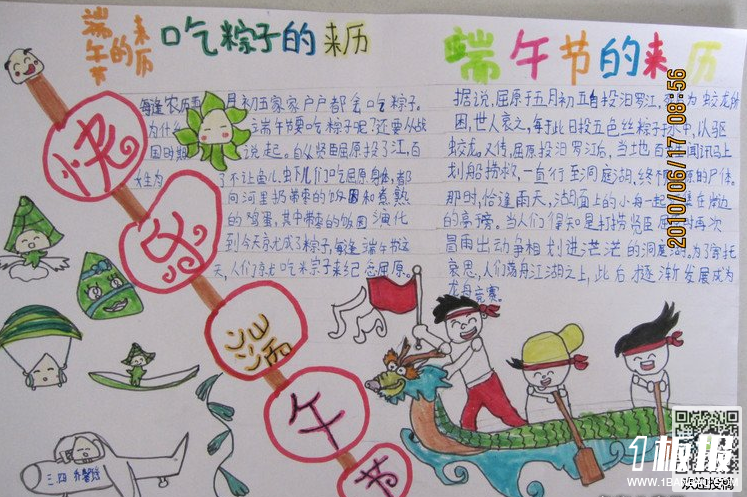 端午节的来历
吃粽子的来历
每逢农历五月初五家家户户都会吃粽子。
为什么端午节要吃粽子呢?还要从战
国时期说起。自从贤臣屈原投了江,百
姓为了不让鱼儿、虾儿们吃屈原身体,都
向河里扔带枣的饭团和煮熟
的鸡蛋,其中带枣的饭团演化
到今天就成了粽子,每逢端午节这
天,人们就吃粽子来纪念屈原。
端午节的来历
据说,屈原于五月初五自投汨罗江,
为蛟龙所
困,世人哀之,每于此日投五色丝粽子于水中,以驱
蛟龙。又传,屈原投汨罗江后,当地百姓闻讯马上
划船捞救,一直行至洞庭湖,终不见屈原的尸体。
那时,恰逢雨天,湖面上的小舟一起
岸边
的亭旁。当人们得知是打捞贤臣
时再次
冒雨出动,争相划进茫茫的洞庭湖。为了寄托
哀思,人们荡舟江湖之上,此后逐渐发展成为
龙舟竞赛。
快
乐
端
午
节
三四
2010/06/17 08:56
1板报
WWW.1BANBAO.COM